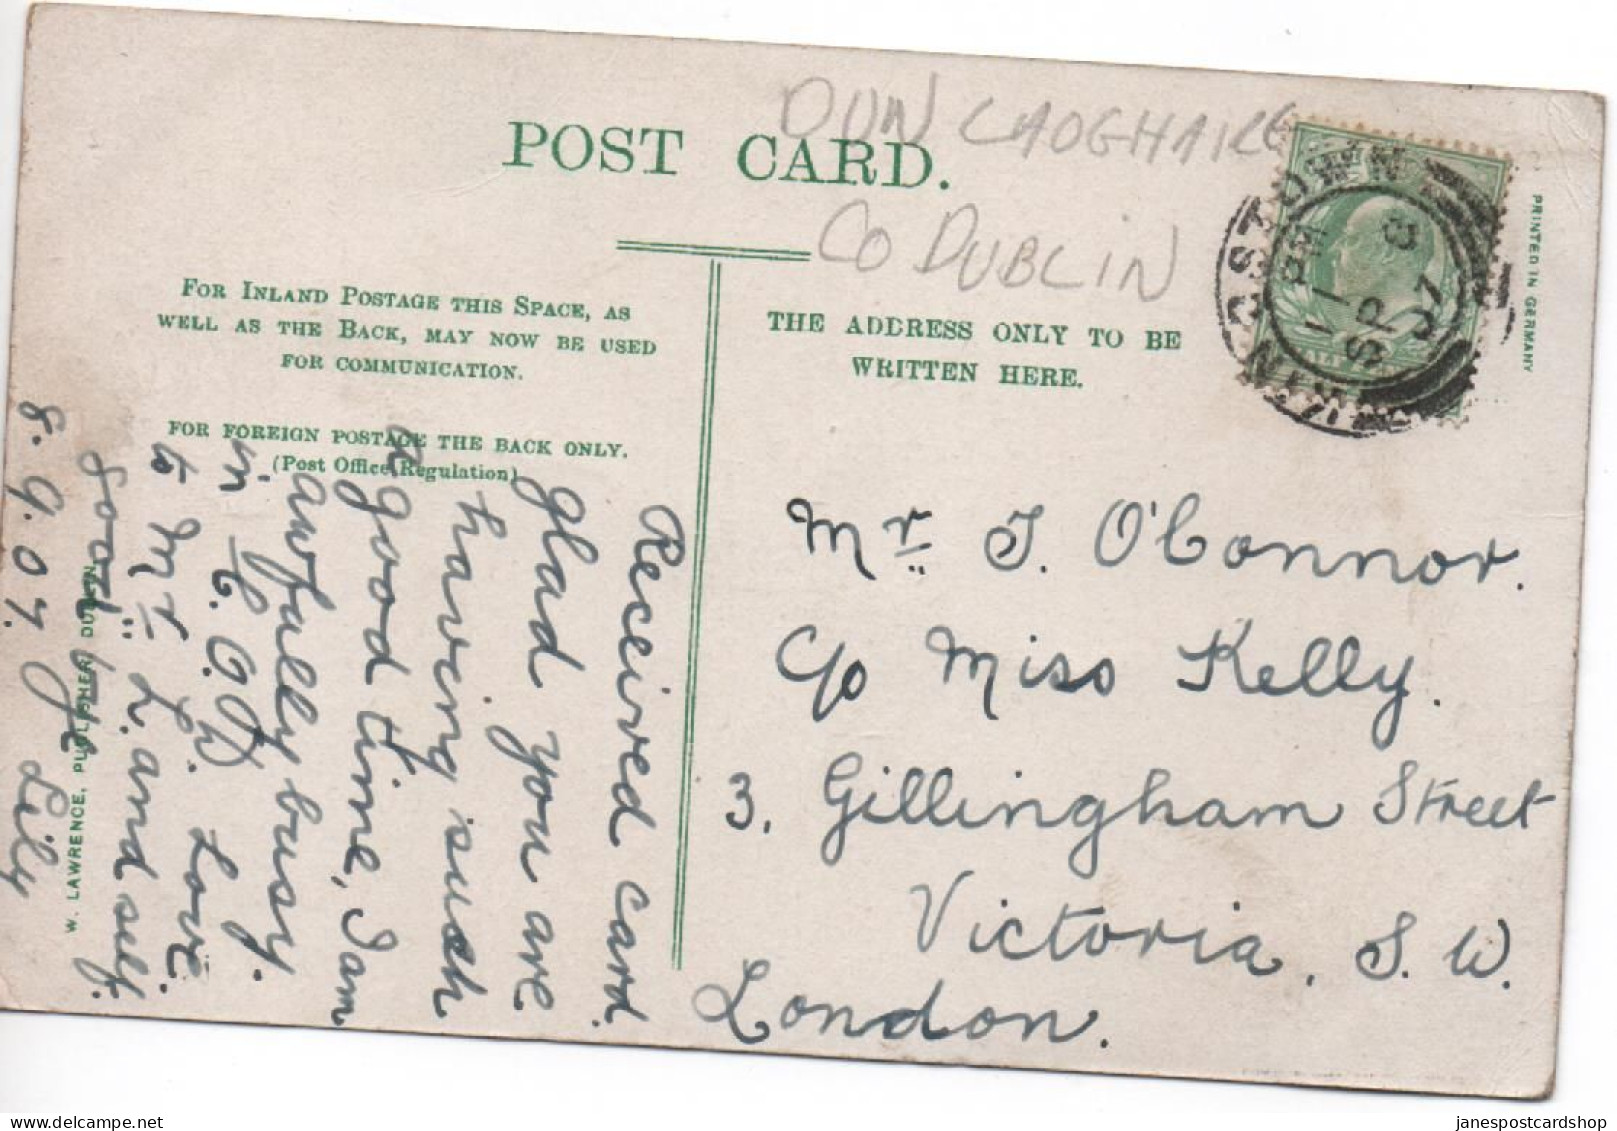 DUN LAOGHAIRE
CO DUBLIN
POST CARD.
FOR INLAND POSTAGE THIS SPACE, AS
WELL AS THE BACK, MAY NOW BE USED
FOR COMMUNICATION.
FOR FOREIGN POSTAGE THE BACK ONLY.
(Post Office Regulation)
THE ADDRESS ONLY TO BE
WRITTEN HERE.
PRINTED IN GERMANY
11 PM
SP 8
07
Mr. J. O'Connor.
c/o Miss Kelly.
3, Gillingham Street
Victoria, S. W.
London.
Received card.
glad you are
having such
a good time, I am
awfully busy.
in
to Mr L. and self.
Good bye Lily
8. 9. 07.
W. LAWRENCE, PUBLISHER, DUBLIN.
janespostcardshop